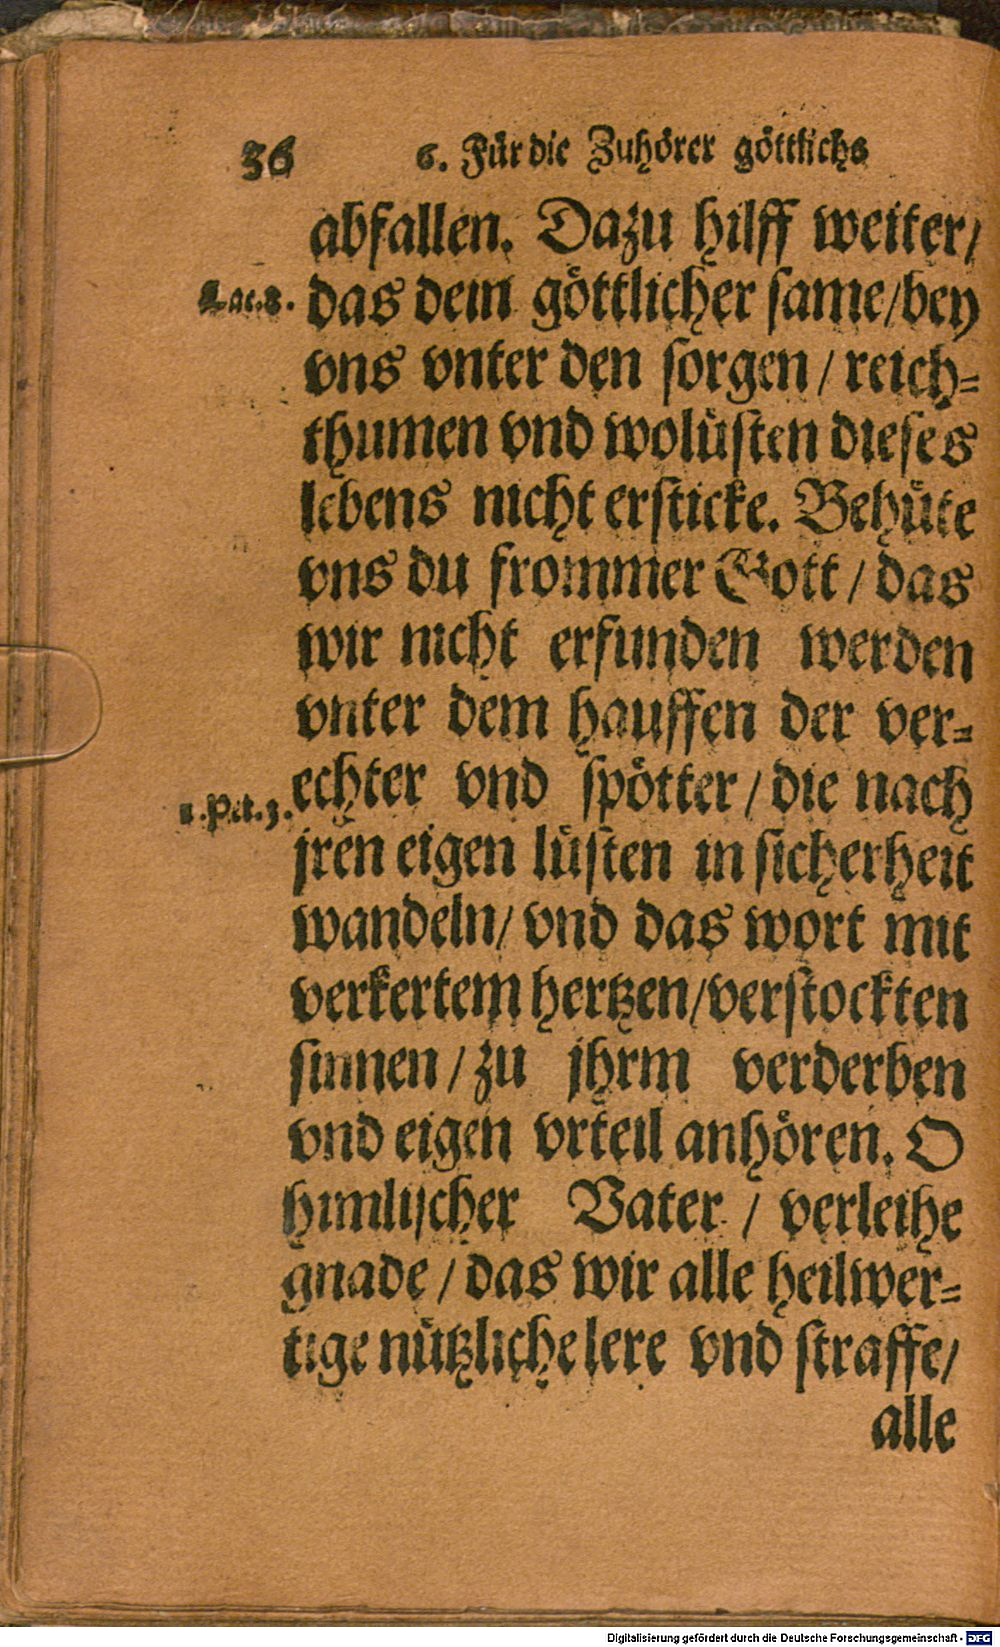 36 6. Für die Zuhörer göttlichs
abfallen. Dazu hilff weiter/
Luc.8. das dein göttlicher same/bey
vns vnter den sorgen / reich=
thumen vnd wolüsten dieses
lebens nicht ersticke. Behüte
vns du frommer Gott / das
wir nicht erfunden werden
vnter dem hauffen der ver=
1.Pet.3. echter vnd spötter / die nach
jren eigen lüsten in sicherheit
wandeln/ vnd das wort mit
verkertem hertzen/verstockten
sinnen / zu jhrm verderben
vnd eigen vrteil anhören. O
himlischer Vater / verleihe
gnade / das wir alle heilwer=
tige nützliche lere vnd straffe/
alle
Digitalisierung gefördert durch die Deutsche Forschungsgemeinschaft - DFG